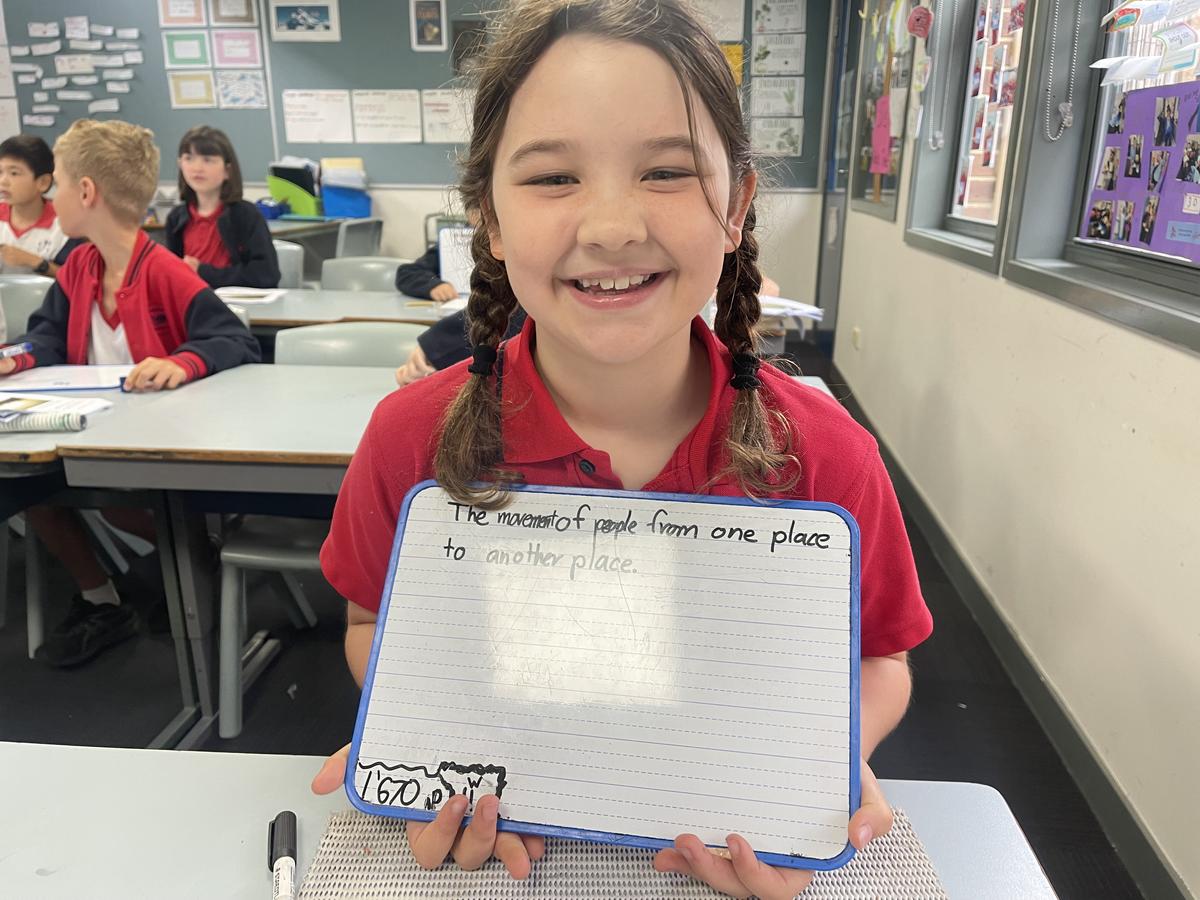 The movement of people from one place
to another place.